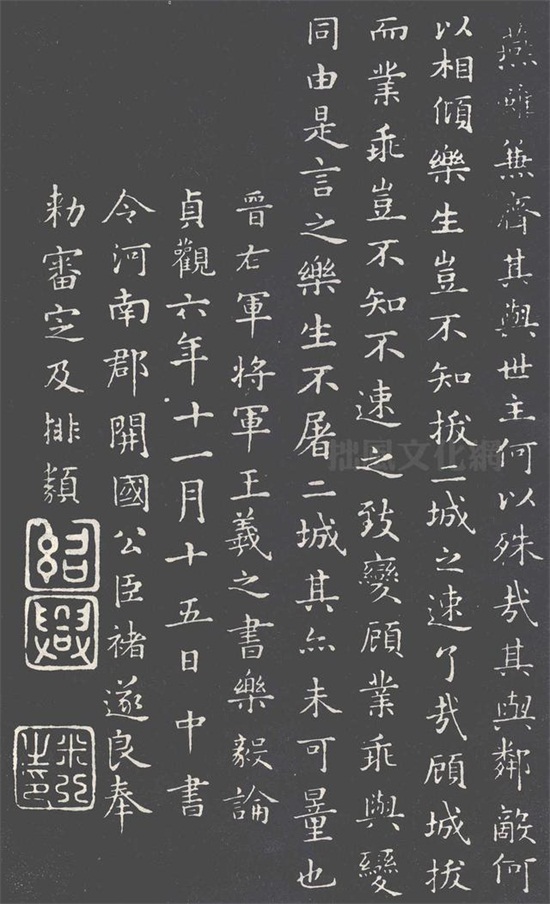 燕雖兼齊其與世主何以殊哉其與鄰敵何
以相傾樂生豈不知拔二城之速了哉顧城拔
而業乖豈不知不速之致變顧業乖與變
同由是言之樂生不屠二城其亦未可量也
晉右軍將軍王羲之書樂毅論
貞觀六年十一月十五日中書
令河南郡開國公臣褚遂良奉
勑審定及排類
紹興
米芾之印
拙風文化網